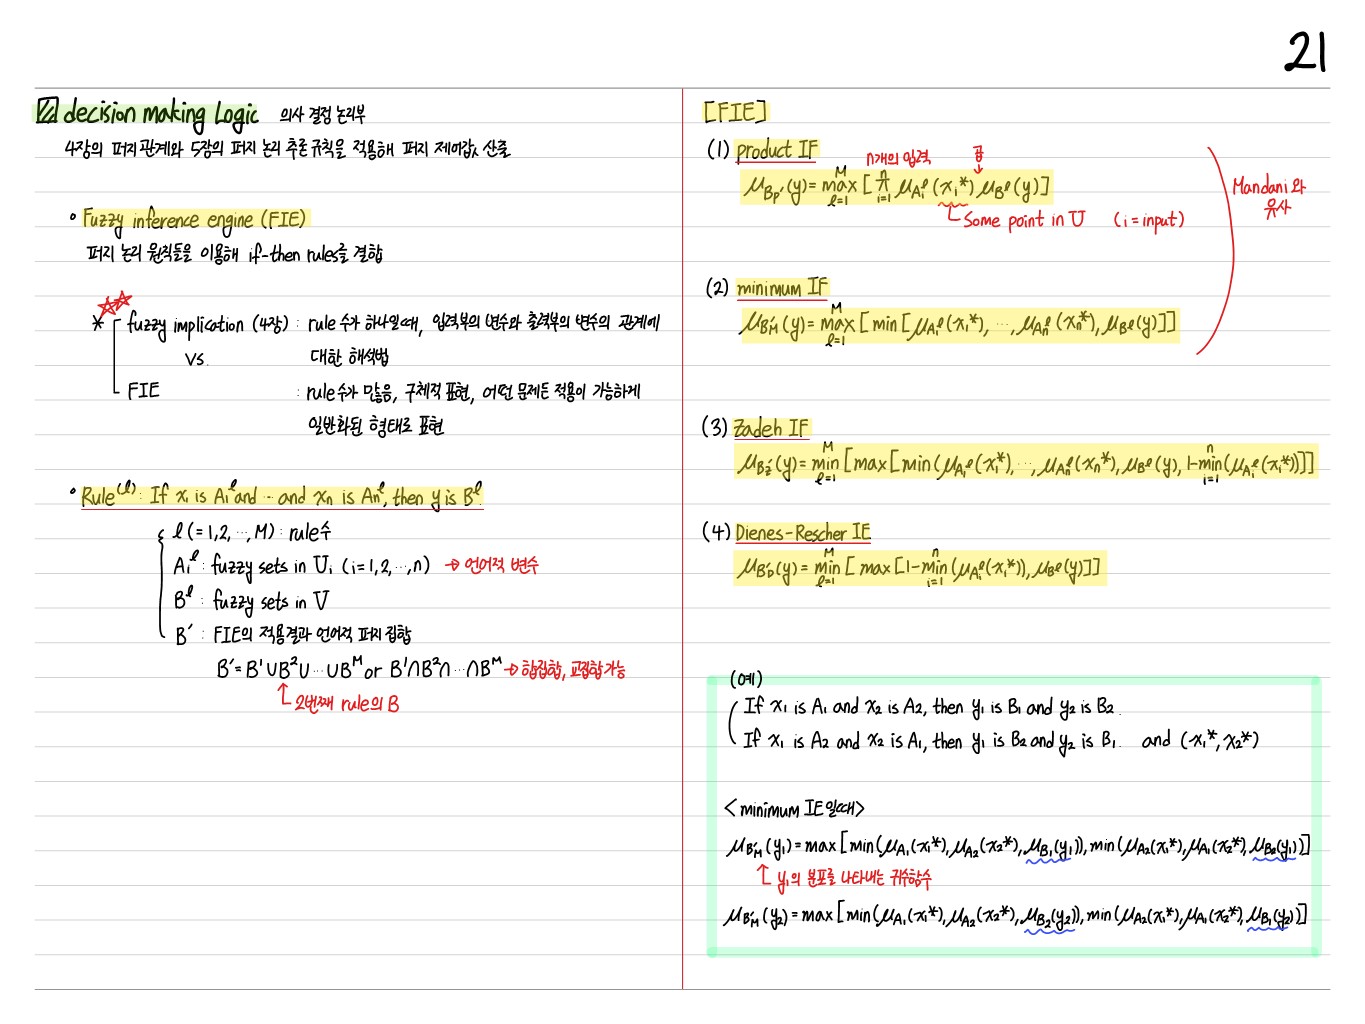 21
decision making Logic 의사 결정 논리부
4장의 퍼지관계와 5장의 퍼지 논리 추론규칙을 적용해 퍼지 제어값 산출
• Fuzzy inference engine (FIE)
퍼지 논리 원칙들을 이용해 if-then rules를 결합
* fuzzy implication (4장) : rule 수가 하나일때, 입력부의 변수와 출력부의 변수의 관계에
vs. 대한 해석법
FIE : rule수가 많음, 구체적 표현, 어떤 문제든 적용이 가능하게
일반화된 형태로 표현
• Rule⁽ˡ⁾ : If x₁ is A₁ˡ and ⋯ and xₙ is Aₙˡ, then y is Bˡ.
l (=1,2,⋯,M) : rule수
Aᵢˡ : fuzzy sets in Uᵢ (i=1,2,⋯,n) → 언어적 변수
Bˡ : fuzzy sets in V
B′ : FIE의 적용결과 언어적 퍼지 집합
B′=B¹∪B²∪⋯∪Bᴹ or B¹∩B²∩⋯∩Bᴹ → 합집합, 교집합 가능
2번째 rule의 B
[FIE]
(1) product IF
n개의 입력 곱
μ_Bp′(y)= max_{l=1}^{M} [ π_{i=1}^{n} μ_Aᵢˡ(xᵢ*) μ_Bˡ(y)]
Some point in U (i=input)
Mandani와
유사
(2) minimum IF
μ_B′M(y)= max_{l=1}^{M} [min[μ_A₁ˡ(x₁*), ⋯, μ_Aₙˡ(xₙ*), μ_Bˡ(y)]]
(3) Zadeh IF
μ_B′z(y)= min_{l=1}^{M} [max[min(μ_A₁ˡ(x₁*), ⋯, μ_Aₙˡ(xₙ*), μ_Bˡ(y), 1-min_{i=1}^{n}(μ_Aᵢˡ(xᵢ*))]]
(4) Dienes-Rescher IE
μ_B′D(y)= min_{l=1}^{M} [max[1-min_{i=1}^{n}(μ_Aᵢˡ(xᵢ*)), μ_Bˡ(y)]]
(예)
If x₁ is A₁ and x₂ is A₂, then y₁ is B₁ and y₂ is B₂.
If x₁ is A₂ and x₂ is A₁, then y₁ is B₂ and y₂ is B₁. and (x₁*, x₂*)
<minimum IE일때>
μ_B′M(y₁)=max[min(μ_A₁(x₁*), μ_A₂(x₂*), μ_B₁(y₁)), min(μ_A₂(x₁*), μ_A₁(x₂*), μ_B₂(y₁))]
y₁의 분포를 나타내는 귀수함수
μ_B′M(y₂)=max[min(μ_A₁(x₁*), μ_A₂(x₂*), μ_B₂(y₂)), min(μ_A₂(x₁*), μ_A₁(x₂*), μ_B₁(y₂))]